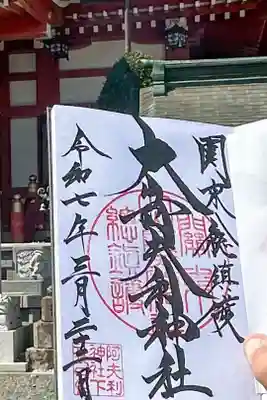 関東総鎮護
大山阿夫利神社
令和七年三月
關東
総鎮護
阿夫利
神社下